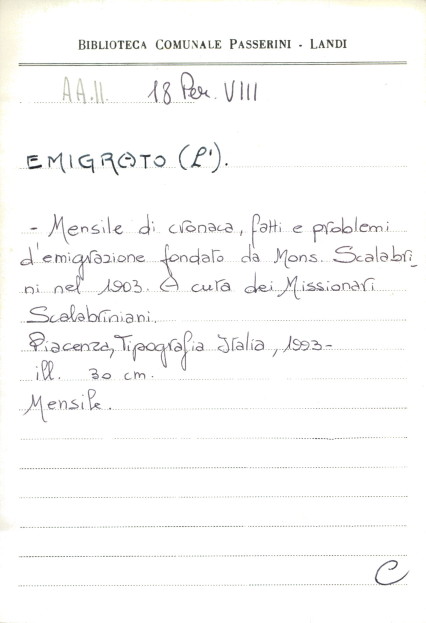 BIBLIOTECA COMUNALE PASSERINI - LANDI
AA.II. 18 Per. VIII
EMIGRATO (L').
- Mensile di cronaca, fatti e problemi
d'emigrazione fondato da Mons. Scalabri_
ni nel 1903. A cura dei Missionari
Scalabriniani.
Piacenza, Tipografia Italia, 1993-
ill. 30 cm.
Mensile.
C